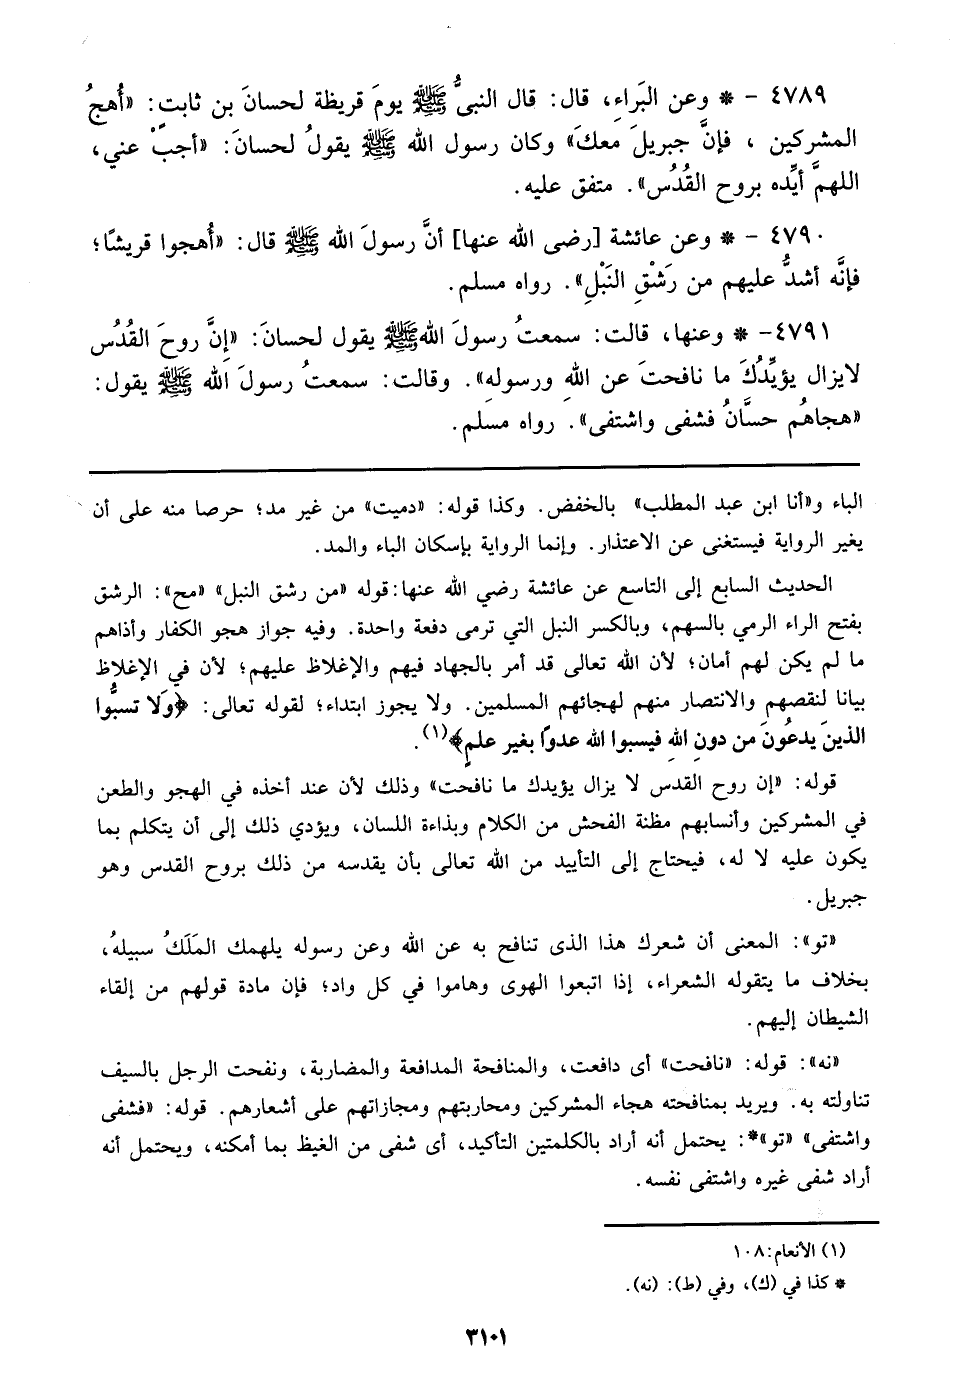 ٤٧٨٩ - * وعن البَراءِ، قال: قال النبىُّ ﷺ يومَ قريظة لحسانَ بن ثابتٍ: «أُهجُ
المشركين ، فإنَّ جبريلَ معكَ» وكان رسول الله ﷺ يقولُ لحسانَ: «أجبْ عني،
اللهمَّ أيِّده بروح القُدُس». متفق عليه.
٤٧٩٠ - * وعن عائشة [رضى الله عنها] أنَّ رسولَ الله ﷺ قال: «أُهجوا قريشًا؛
فإنَّه أشدُّ عليهم من رَشْقِ النَبْلِ». رواه مسلم.
٤٧٩١- * وعنها، قالت: سمعتُ رسولَ اللهﷺ يقول لحسانَ: «إِنَّ روحَ القُدُس
لايزال يؤيِّدُكَ ما نافحتَ عن اللهِ ورسولِهِ». وقالت: سمعتُ رسولَ الله ﷺ يقول:
«هجاهُم حسَّانُ فشفى واشتفى». رواه مسلم.
الباء و«أنا ابن عبد المطلب» بالخفض. وكذا قوله: «دميت» من غير مد؛ حرصا منه على أن
يغير الرواية فيستغنى عن الاعتذار. وإنما الرواية بإسكان الباء والمد.
الحديث السابع إلى التاسع عن عائشة رضي الله عنها:قوله «من رشق النبل» «مح»: الرشق
بفتح الراء الرمي بالسهم، وبالكسر النبل التي ترمى دفعة واحدة. وفيه جواز هجو الكفار وأذاهم
ما لم يكن لهم أمان؛ لأن الله تعالى قد أمر بالجهاد فيهم والإغلاظ عليهم؛ لأن في الإغلاظ
بيانا لنقصهم والانتصار منهم لهجائهم المسلمين. ولا يجوز ابتداء؛ لقوله تعالى: ﴿وَلا تسبُّوا
الذينَ يدعُونَ من دونِ اللهِ فيسبوا الله عدوًا بغير علمٍ﴾(١).
قوله: «إن روح القدس لا يزال يؤيدك ما نافحت» وذلك لأن عند أخذه في الهجو والطعن
في المشركين وأنسابهم مظنة الفحش من الكلام وبذاءة اللسان، ويؤدي ذلك إلى أن يتكلم بما
يكون عليه لا له، فيحتاج إلى التأييد من الله تعالى بأن يقدسه من ذلك بروح القدس وهو
جبريل.
«تو»: المعنى أن شعرك هذا الذى تنافح به عن الله وعن رسوله يلهمك المَلَكُ سبيلهُ،
بخلاف ما يتقوله الشعراء، إذا اتبعوا الهوى وهاموا في كل واد؛ فإن مادة قولهم من إلقاء
الشيطان إليهم.
«نه»: قوله: «نافحت» أى دافعت، والمنافحة المدافعة والمضاربة، ونفحت الرجل بالسيف
تناولته به. ويريد بمنافحته هجاء المشركين ومحاربتهم ومجازاتهم على أشعارهم. قوله: «فشفى
واشتفى» «تو»*: يحتمل أنه أراد بالكلمتين التأكيد، أى شفى من الغيظ بما أمكنه، ويحتمل أنه
أراد شفى غيره واشتفى نفسه.
(١) الأنعام:١٠٨
* كذا في (ك)، وفي (ط): (نه).
٣١٠١